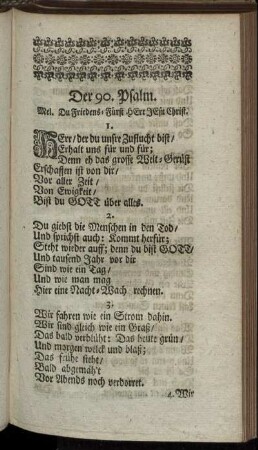 Der 90. Psalm.
Mel. Du Friedens-Fürst HErr JEsu Christ.
1.
HErr/ der du unsre Zuflucht bist/
Erhalt uns für und für;
Denn eh das grosse Welt-Gerüst
Erschaffen ist von dir/
Vor aller Zeit/
Von Ewigkeit/
Bist du GOTT über alles.
2.
Du giebst die Menschen in den Tod/
Und sprichst auch: Kommt herfür;
Steht wieder auff; denn du bist GOTT/
Und tausend Jahr vor dir
Sind wie ein Tag/
Und wie man mag
Hier eine Nacht-Wach rechnen.
3.
Wir fahren wie ein Strom dahin.
Wir sind gleich wie ein Graß/
Das bald verblüht: Das heute grün/
Und morgen welck und blaß;
Das frühe steht/
Bald abgemäh't
Vor Abends noch verdorret.
4. Wir